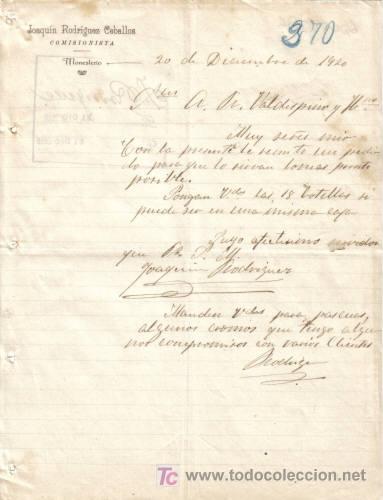 Joaquín Rodríguez Ceballos
COMISIONISTA
Monesterio
370
20 de Diciembre de 1920
Sres A. R. Valdespino y Hno
Muy sres mio
Con la presente le remito un pedido
para que lo sirvan lo mas pronto
posible.
Pongan Vdes las 18 botellas si
puede ser en una misma caja
Suyo afectisimo servidor
que
Joaquin Rodriguez
Manden Vdes para pascuas
algunos cromos que tengo algu
nos compromisos con varios Clientes
Rodriguez
TC www.todocoleccion.net